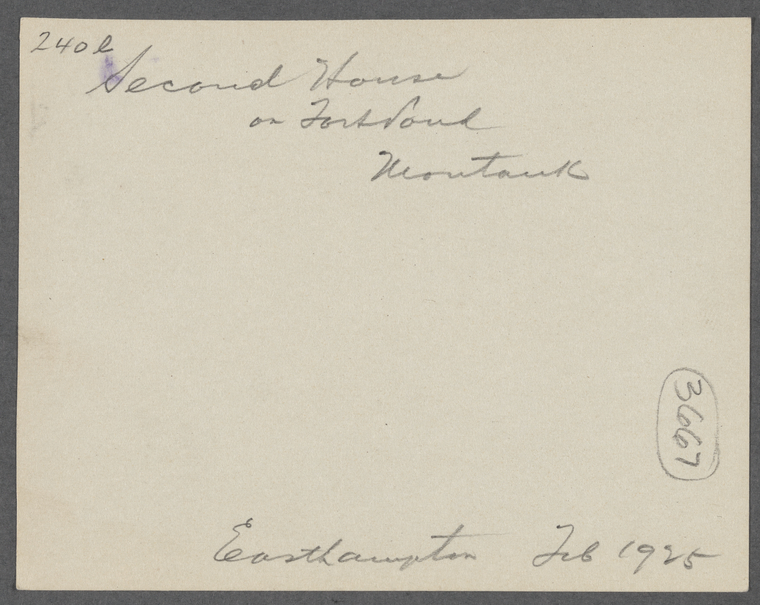 240l
Second House
on Fort Pond
Montauk
3667
Easthampton Feb 1925